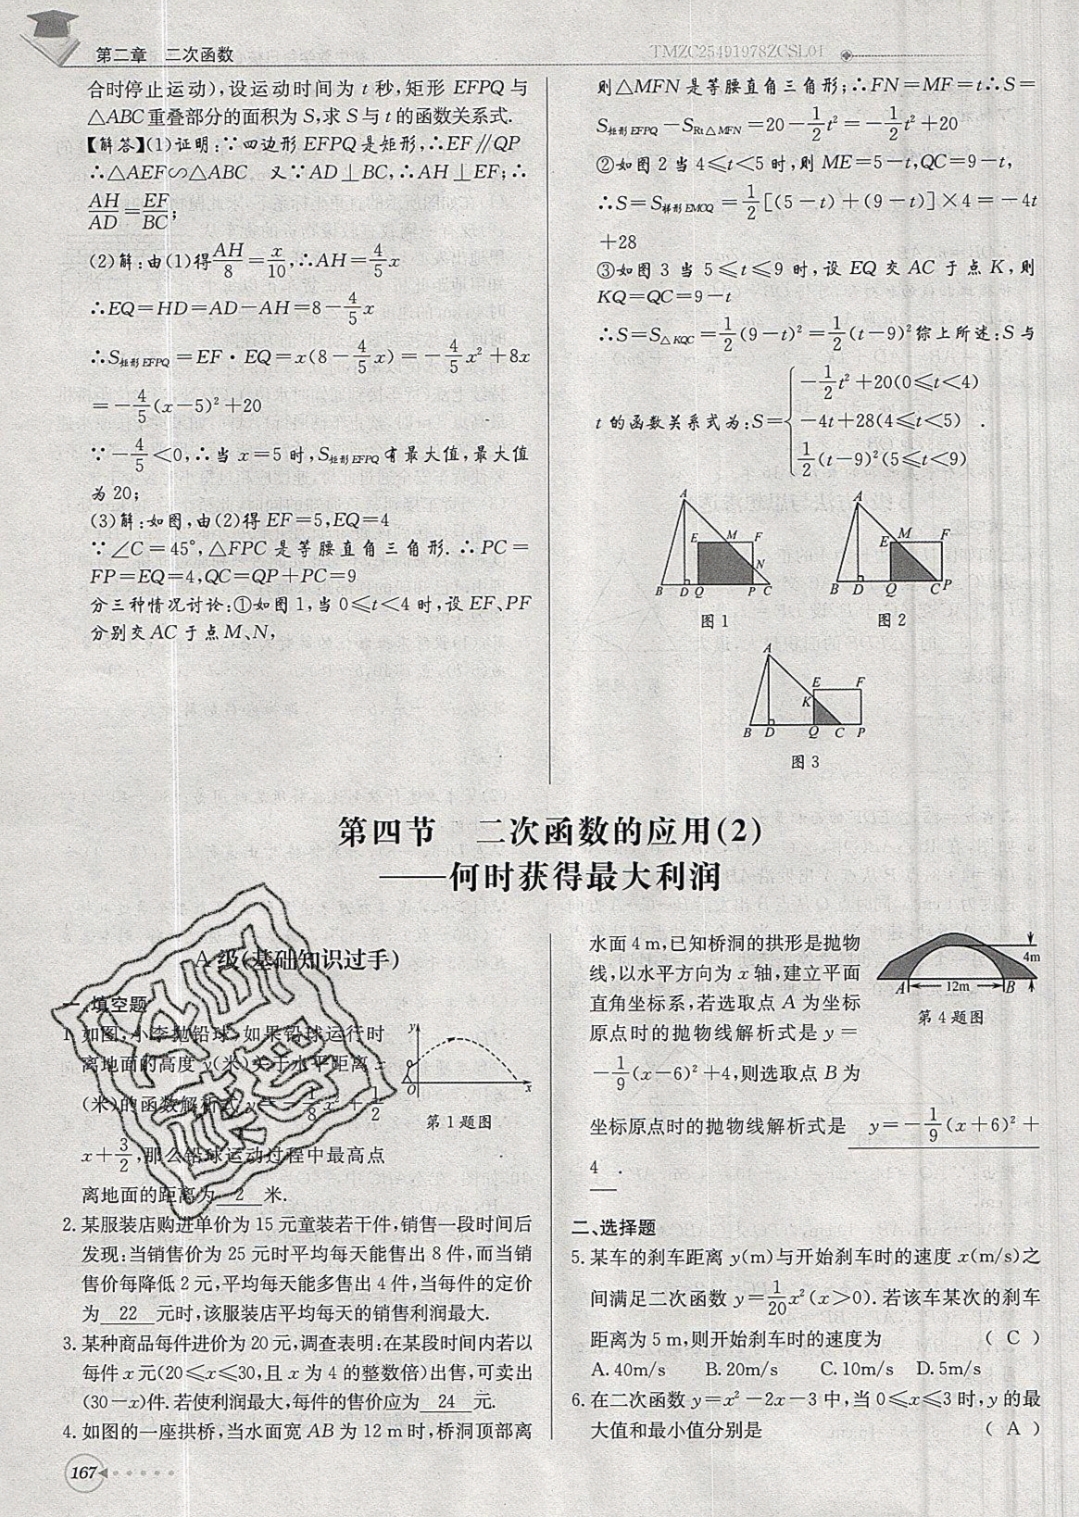 第二章 二次函数
TMZC25491978ZCSL01
合时停止运动),设运动时间为 t 秒,矩形 EFPQ 与
△ABC重叠部分的面积为 S,求 S 与 t 的函数关系式.
【解答】(1)证明:∵四边形 EFPQ 是矩形,∴EF∥QP
∴△AEF∽△ABC 又∵AD⊥BC,∴AH⊥EF;∴
AH/AD=EF/BC;
(2)解:由(1)得AH/8=x/10,∴AH=4/5x
∴EQ=HD=AD-AH=8-4/5x
∴S矩形EFPQ=EF·EQ=x(8-4/5x)=-4/5x²+8x
=-4/5(x-5)²+20
∵-4/5<0,∴当 x=5 时,S矩形EFPQ有最大值,最大值
为 20;
(3)解:如图,由(2)得 EF=5,EQ=4
∵∠C=45°,△FPC 是等腰直角三角形.∴PC=
FP=EQ=4,QC=QP+PC=9
分三种情况讨论:①如图 1,当 0⩽t<4 时,设 EF、PF
分别交 AC 于点 M、N,
则△MFN 是等腰直角三角形;∴FN=MF=t∴S=
S矩形EFPQ-SRt△MFN=20-1/2t²=-1/2t²+20
②如图 2 当 4⩽t<5 时,则 ME=5-t,QC=9-t,
∴S=S梯形EMCQ=1/2[(5-t)+(9-t)]×4=-4t
+28
③如图 3 当 5⩽t⩽9 时,设 EQ 交 AC 于点 K,则
KQ=QC=9-t
∴S=S△KQC=1/2(9-t)²=1/2(t-9)²综上所述:S 与
-1/2t²+20(0⩽t<4)
t 的函数关系式为:S={-4t+28(4⩽t<5) .
1/2(t-9)²(5⩽t<9)
A
E M F
N
B D Q P C
图 1
A
E M F
B D Q C P
图 2
A
E F
K
B D Q C P
图 3
第四节 二次函数的应用(2)
——何时获得最大利润
A 级(基础知识过手)
一、填空题
1. 如图,小李抛铅球,如果铅球运行时
离地面的高度 y(米)关于水平距离 x
(米)的函数解析式 y=-1/8x²+1/2
x+3/2,那么铅球运动过程中最高点
离地面的距离为 2 米.
y
O x
第 1 题图
2. 某服装店购进单价为 15 元童装若干件,销售一段时间后
发现:当销售价为 25 元时平均每天能售出 8 件,而当销
售价每降低 2 元,平均每天能多售出 4 件,当每件的定价
为 22 元时,该服装店平均每天的销售利润最大.
3. 某种商品每件进价为 20 元,调查表明:在某段时间内若以
每件 x 元(20⩽x⩽30,且 x 为 4 的整数倍)出售,可卖出
(30-x)件.若使利润最大,每件的售价应为 24 元.
4. 如图的一座拱桥,当水面宽 AB 为 12 m 时,桥洞顶部离
水面 4 m,已知桥洞的拱形是抛物
线,以水平方向为 x 轴,建立平面
直角坐标系,若选取点 A 为坐标
原点时的抛物线解析式是 y=
-1/9(x-6)²+4,则选取点 B 为
坐标原点时的抛物线解析式是 y=-1/9(x+6)²+
4 .
4m
A 12m B
第 4 题图
二、选择题
5. 某车的刹车距离 y(m)与开始刹车时的速度 x(m/s)之
间满足二次函数 y=1/20x²(x>0).若该车某次的刹车
距离为 5 m,则开始刹车时的速度为 ( C )
A. 40m/s B. 20m/s C. 10m/s D. 5m/s
6. 在二次函数 y=x²-2x-3 中,当 0⩽x⩽3 时,y 的最
大值和最小值分别是 ( A )
167